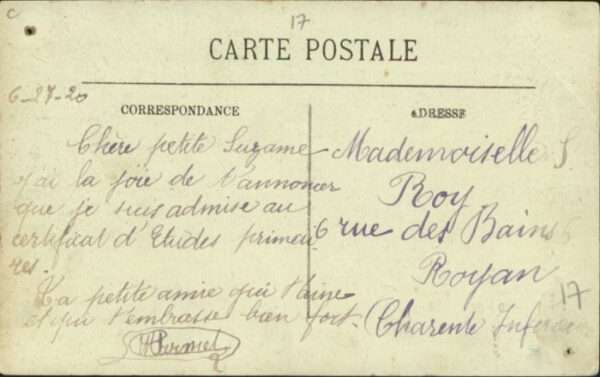 c
17
CARTE POSTALE
6-27-20
CORRESPONDANCE
ADRESSE
Chère petite Suzanne
j'ai la joie de t'annoncer
que je suis admise au
certificat d'Etudes primai
res.
Ta petite amie qui t'aime
et qui t'embrasse bien fort.
Mademoiselle S
Roy
6 rue des Bains
Royan
Charente Infer
17